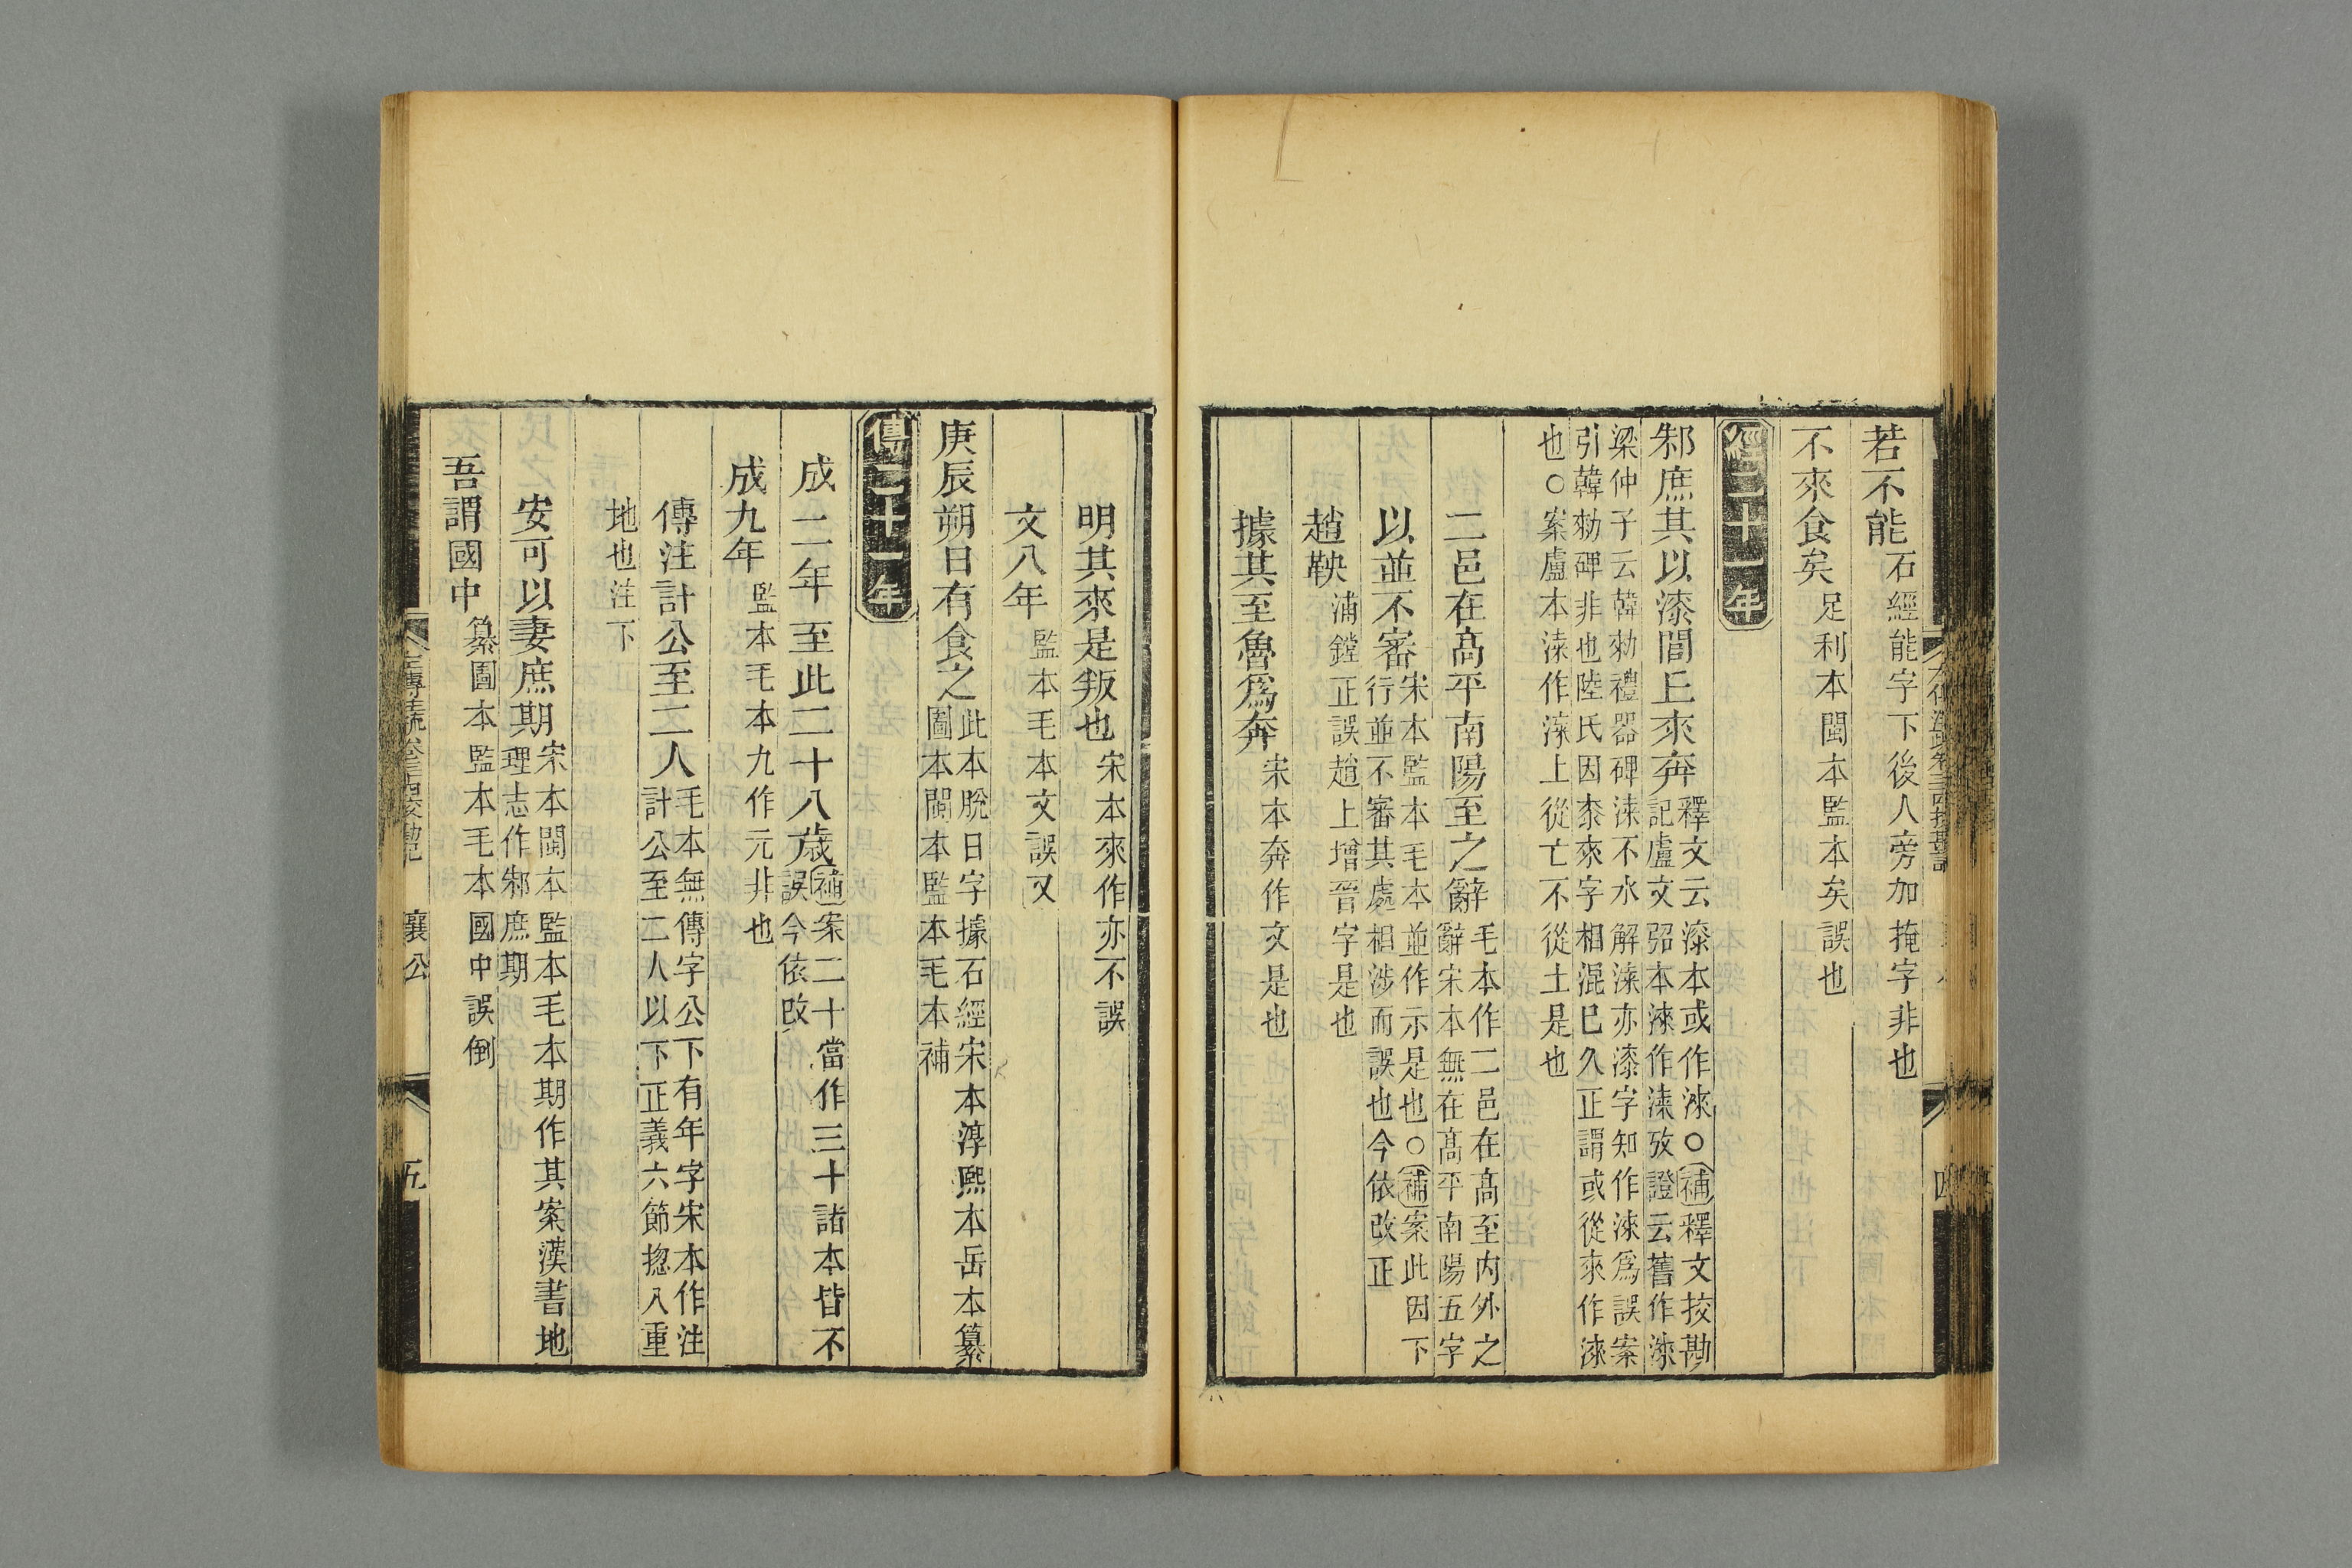 若不能石經能字下後人旁加掩字非也
不來食矣足利本閩本監本矣誤也
經二十一年
邾庶其以漆閭丘來奔釋文云漆本或作淶○補釋文挍勘
記盧文弨本淶作溙攷證云舊作漆
梁仲子云韓勑禮器碑溙不水解溙亦漆字知作淶爲誤案
引韓勑碑非也陸氏因桼來字相混已久正謂或從來作淶
也○案盧本溙作溙上從亡不從土是也
二邑在髙平南陽至之辭毛本作二邑在髙至内外之
辭宋本無在髙平南陽五字
以並不審宋本監本毛本並作示是也○補案此因下
行並不審其處相涉而誤也今依改正
趙鞅浦鏜正誤趙上增晉字是也
據其至魯爲奔宋本奔作文是也
明其來是叛也宋本來作亦不誤
文八年監本毛本文誤又
庚辰朔日有食之此本脫日字據石經宋本淳熙本岳本纂
圖本閩本監本毛本補
傳二十一年
成二年至此二十八歲補案二十當作三十諸本皆不
誤今依改
成九年監本毛本九作元非也
傳注計公至二人毛本無傳字公下有年字宋本作注
計公至二人以下正義六節揔入重
地也注下
安可以妻庶期宋本閩本監本毛本期作其案漢書地
理志作邾庶期
吾謂國中纂圖本監本毛本國中誤倒
襄公
五